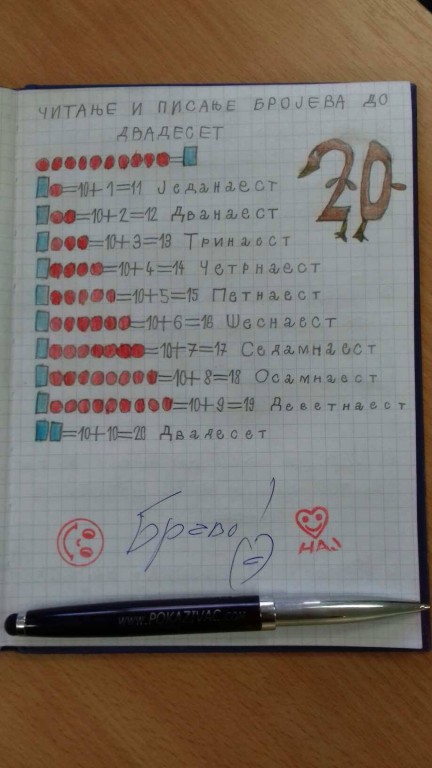 ЧИТАЊЕ И ПИСАЊЕ БРОЈЕВА ДО
ДВАДЕСЕТ
20
=
=10+1=11 Једанаест
=10+2=12 Дванаест
=10+3=13 Тринаост
=10+4=14 Четрнаест
=10+5=15 Петнаест
=10+6=16 Шеснаест
=10+7=17 Седамнаест
=10+8=18 Осамнаест
=10+9=19 Деветнаест
=10+10=20 Двадесет
Браво!
НАЈ
www.POKAZIVAC.com